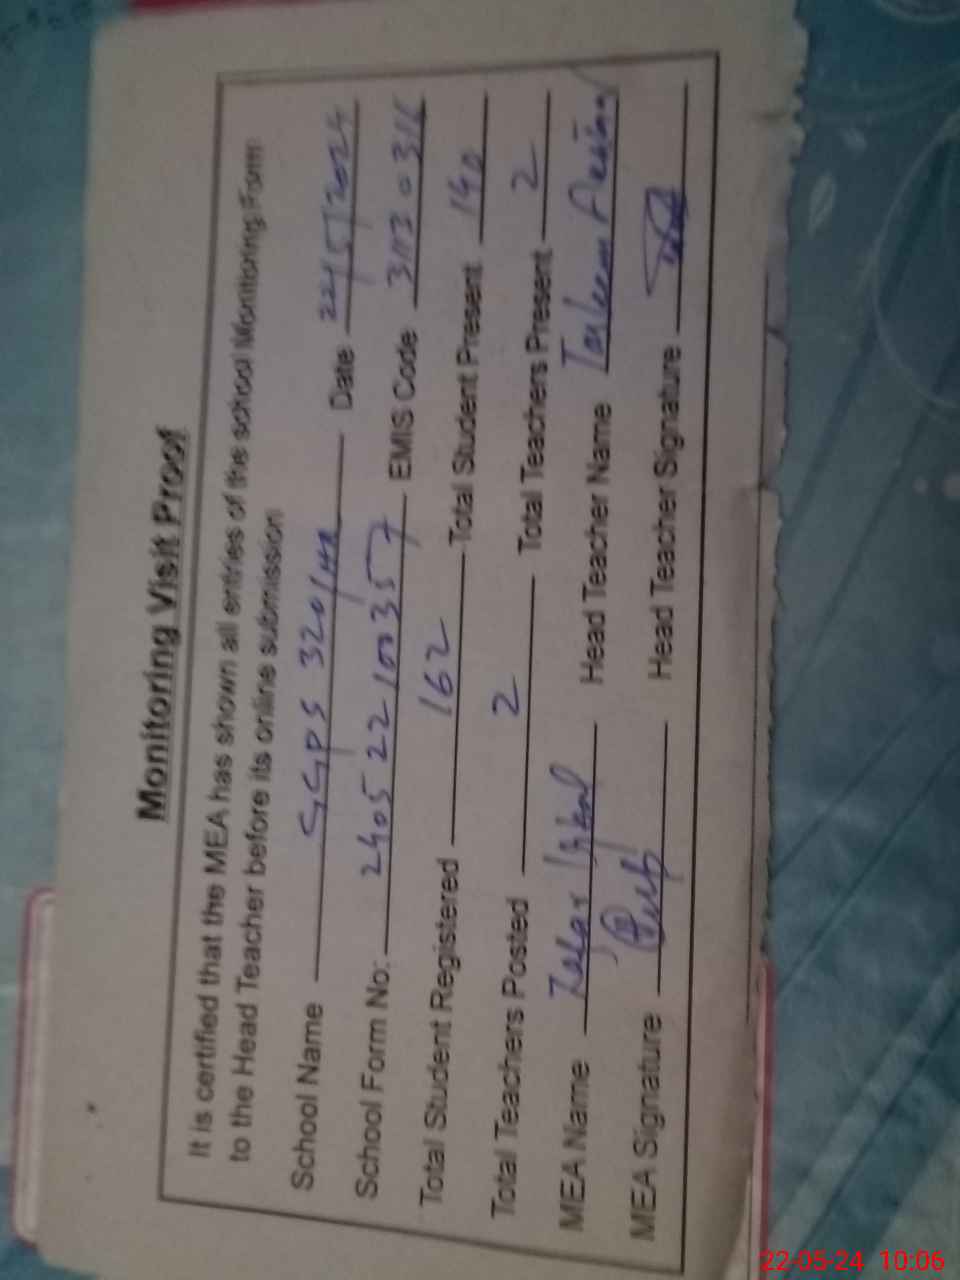 Monitoring Visit Proof
It is certified that the MEA has shown all entries of the school Monitoring Form
to the Head Teacher before its online submission
School Name GGPS 320/HR Date 22/5/2024
School Form No: 2405 22 100357 EMIS Code 31130316
Total Student Registered 162 Total Student Present 140
Total Teachers Posted 2 Total Teachers Present 2
MEA Name Zafar Iqbal Head Teacher Name
MEA Signature Head Teacher Signature
22-05-24 10:06